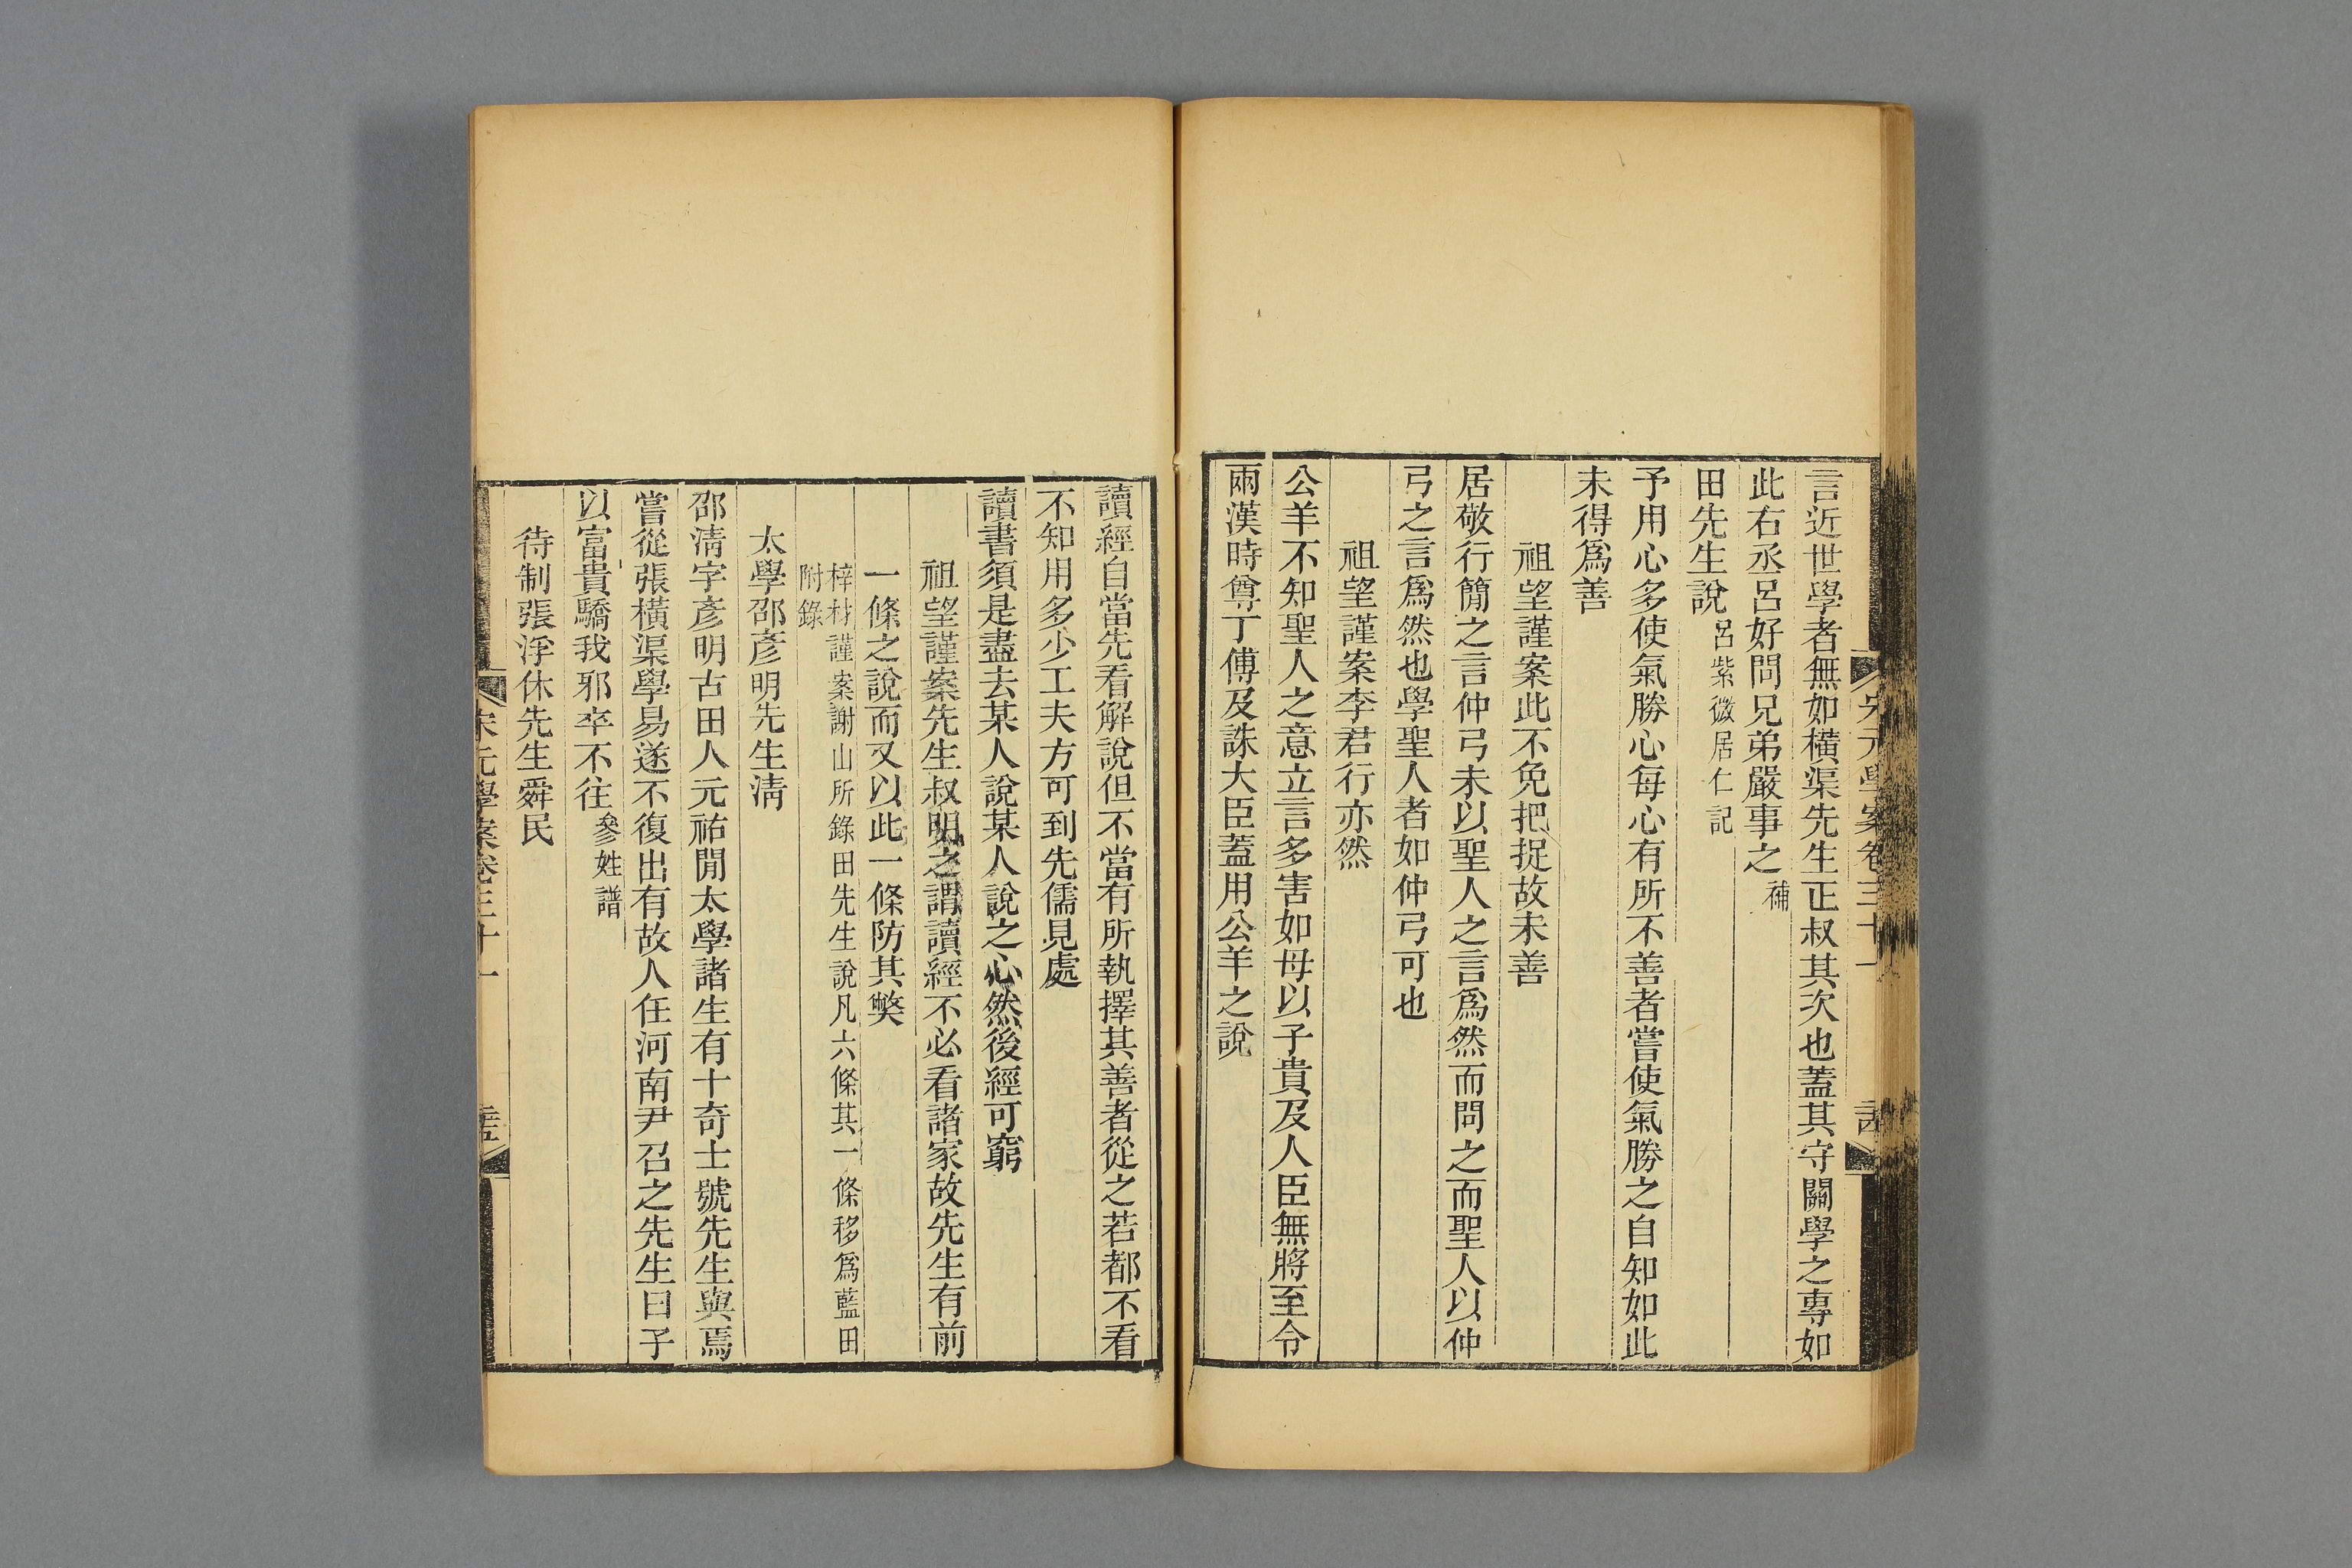 宋元學案卷三十一
言近世學者無如橫渠先生正叔其次也蓋其守關學之專如
此右丞呂好問兄弟嚴事之補
田先生說呂紫微居仁記
予用心多使氣勝心每心有所不善者嘗使氣勝之自知如此
未得爲善
祖望謹案此不免把捉故未善
居敬行簡之言仲弓未以聖人之言爲然而問之而聖人以仲
弓之言爲然也學聖人者如仲弓可也
祖望謹案李君行亦然
公羊不知聖人之意立言多害如母以子貴及人臣無將至令
兩漢時尊丁傅及誅大臣蓋用公羊之說
讀經自當先看解說但不當有所執擇其善者從之若都不看
不知用多少工夫方可到先儒見處
讀書須是盡去某人說某人說之心然後經可窮
祖望謹案先生叔明之謂讀經不必看諸家故先生有前
一條之說而又以此一條防其獘
梓材謹案謝山所錄田先生說凡六條其一條移爲藍田
附錄
太學邵彥明先生淸
邵淸字彥明古田人元祐閒太學諸生有十奇士號先生與焉
嘗從張橫渠學易遂不復出有故人任河南尹召之先生曰子
以富貴驕我邪卒不往參姓譜
待制張浮休先生舜民
宋元學案卷三十一